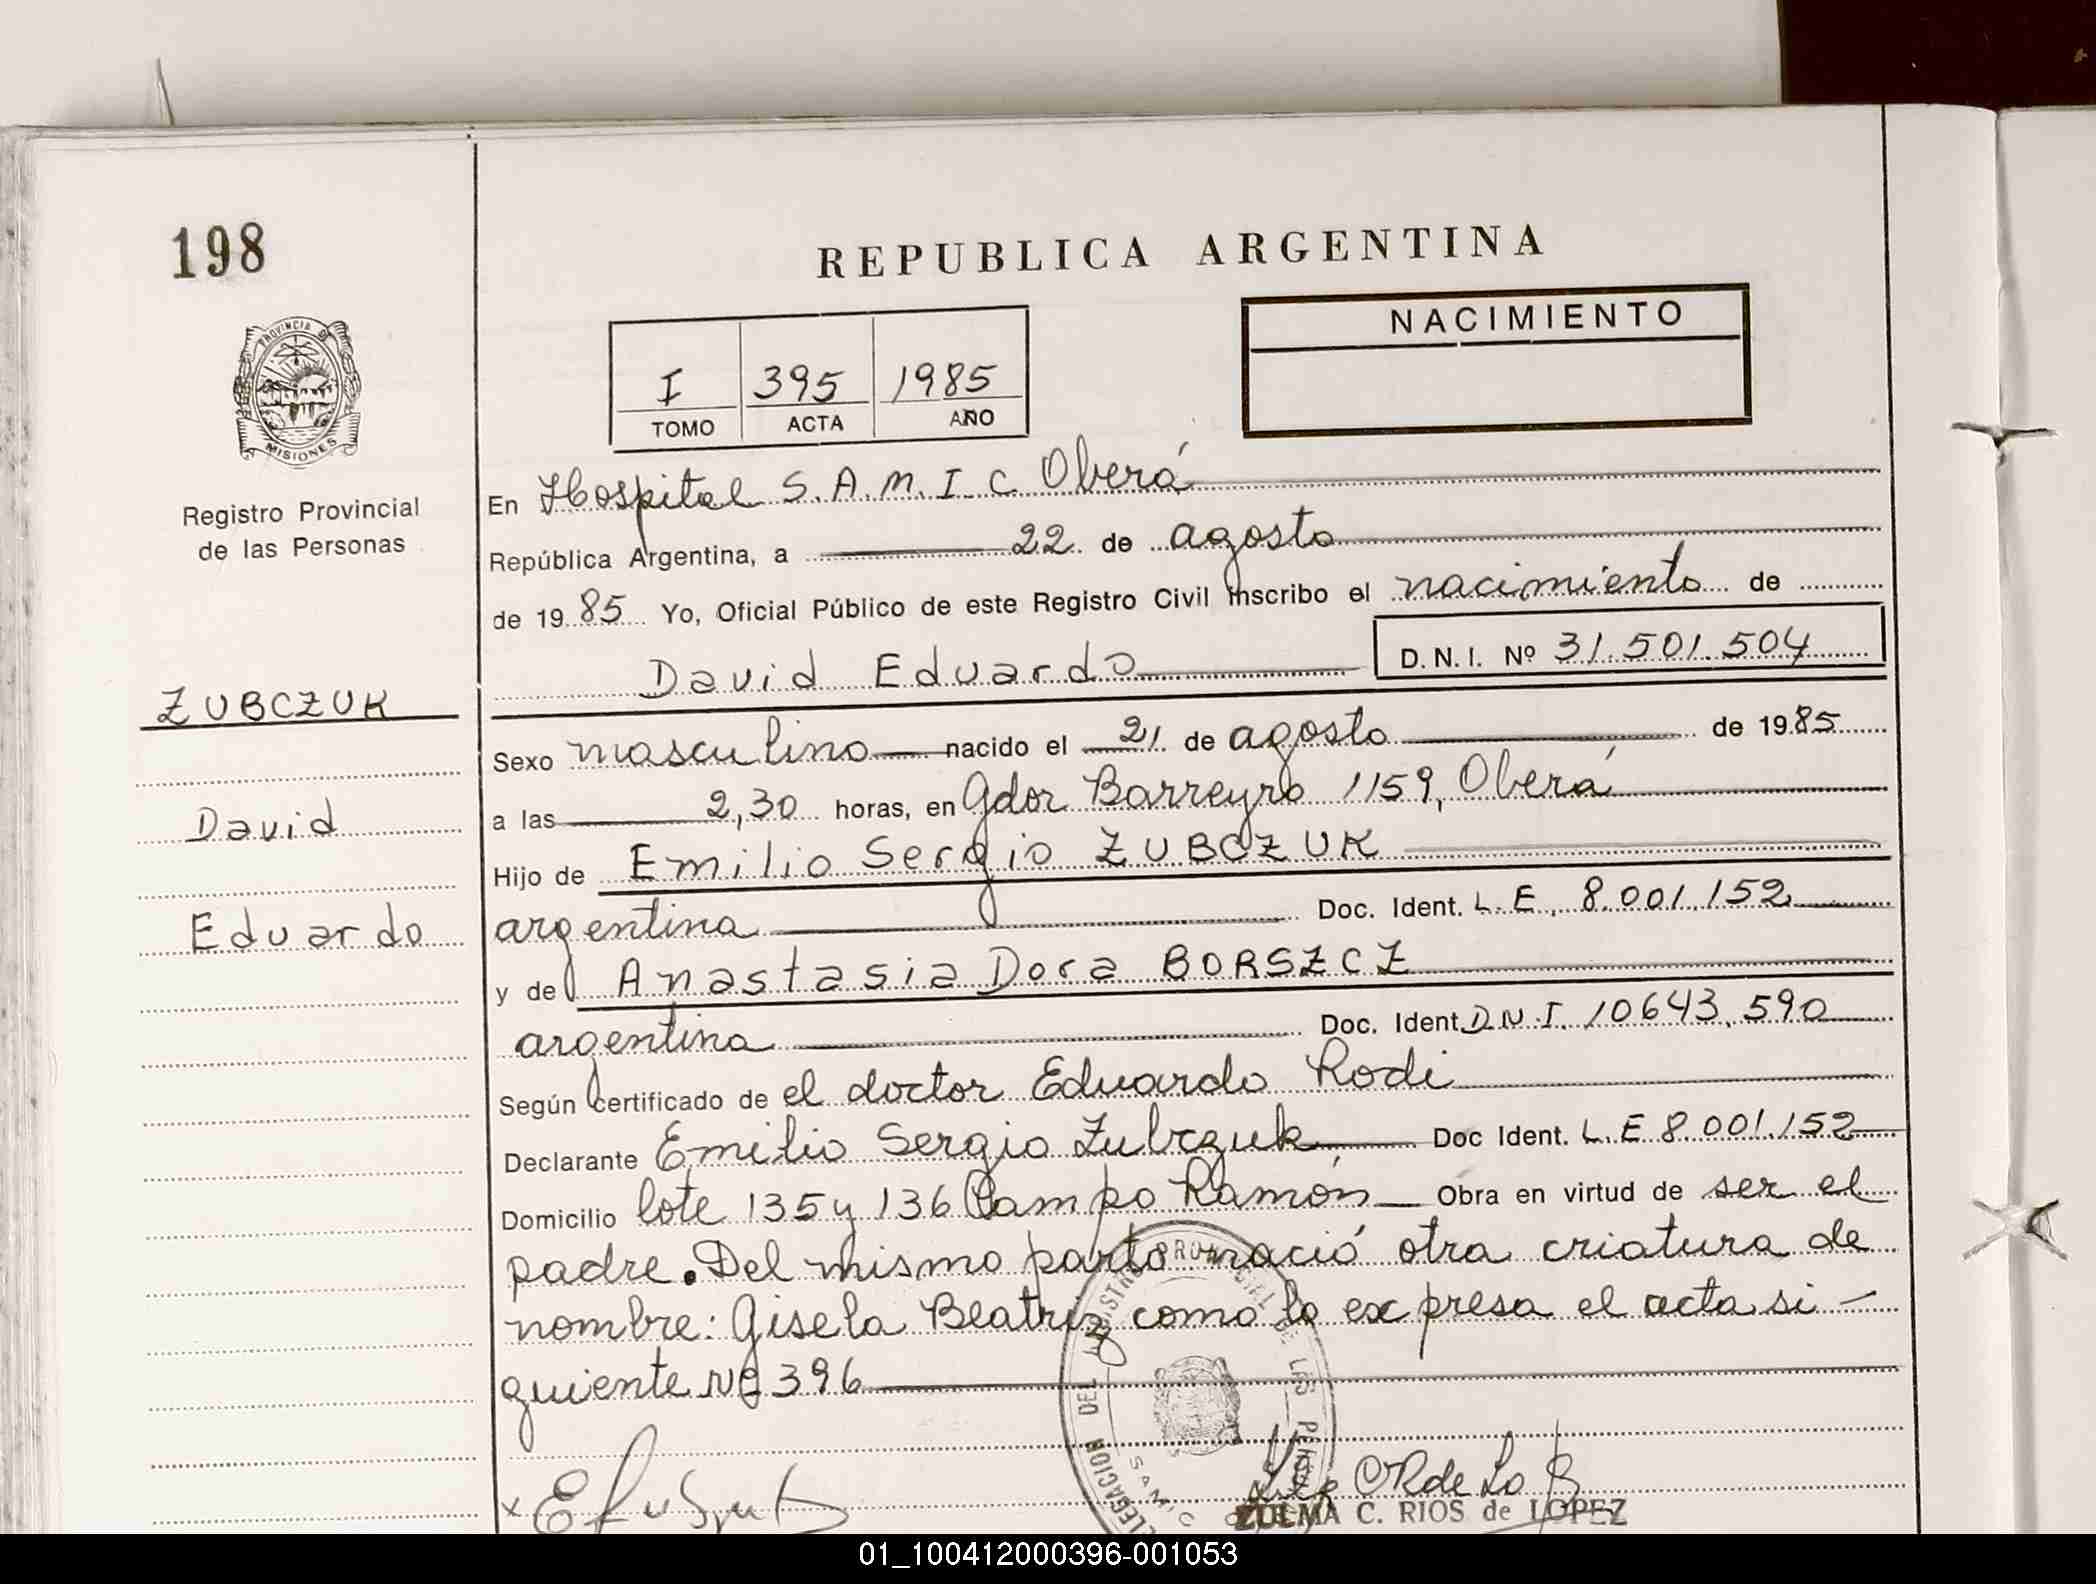 198
REPUBLICA ARGENTINA
NACIMIENTO
I 395 1985
TOMO ACTA AÑO
PROVINCIA DE
MISIONES
Registro Provincial
de las Personas
ZUBCZUK
David
Eduardo
En Hospital S.A.M.I.C. Oberá
República Argentina, a 22 de agosto
de 1985 Yo, Oficial Público de este Registro Civil inscribo el nacimiento de
David Eduardo D.N.I. Nº 31.501.504
Sexo masculino nacido el 21 de agosto de 1985
a las 2,30 horas, en Gdor Barreyro 1159, Oberá
Hijo de Emilio Sergio ZUBCZUK
argentina Doc. Ident. L.E. 8.001.152
y de Anastasia Dora BORSZCZ
argentina Doc. Ident. D.N.I. 10643.590
Según certificado de el doctor Eduardo Rodi
Declarante Emilio Sergio Zubczuk Doc Ident. L.E 8.001.152
Domicilio lote 135 y 136 Campo Ramón Obra en virtud de ser el
padre. Del mismo parto nació otra criatura de
nombre: Gisela Beatriz como lo expresa el acta si-
guiente Nº 396
DELEGACION DEL REGISTRO PROVINCIAL DE LAS PERSONAS
SAMIC
ZULMA C. RIOS de LOPEZ
01_100412000396-001053